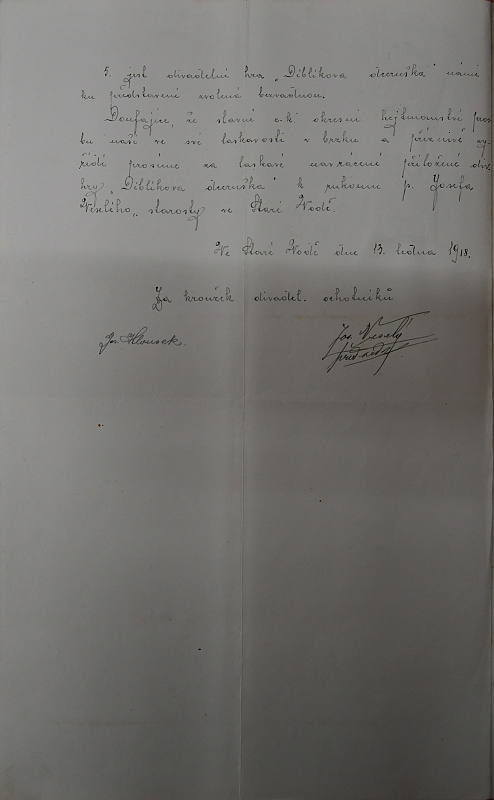 5. jest divadelní hra „Diblíkova dceruška" námi
ku představení zvolená bezvadnou.
Doufajíce, že slavné c.k. okresní hejtmanství pros
bu naši ve své laskavosti v brzku a příznivě vy-
řídí prosíme za laskavé navrácené přiložené div.
hry „Diblíkova dceruška" k rukoum p. Josefa
Veselého, starosty ve Staré Vodě.
Ve Staré Vodě dne 13. ledna 1918.
Za kroužek divadel. ochotníků
Jos. Hlousek.
Jos. Veselý
předseda